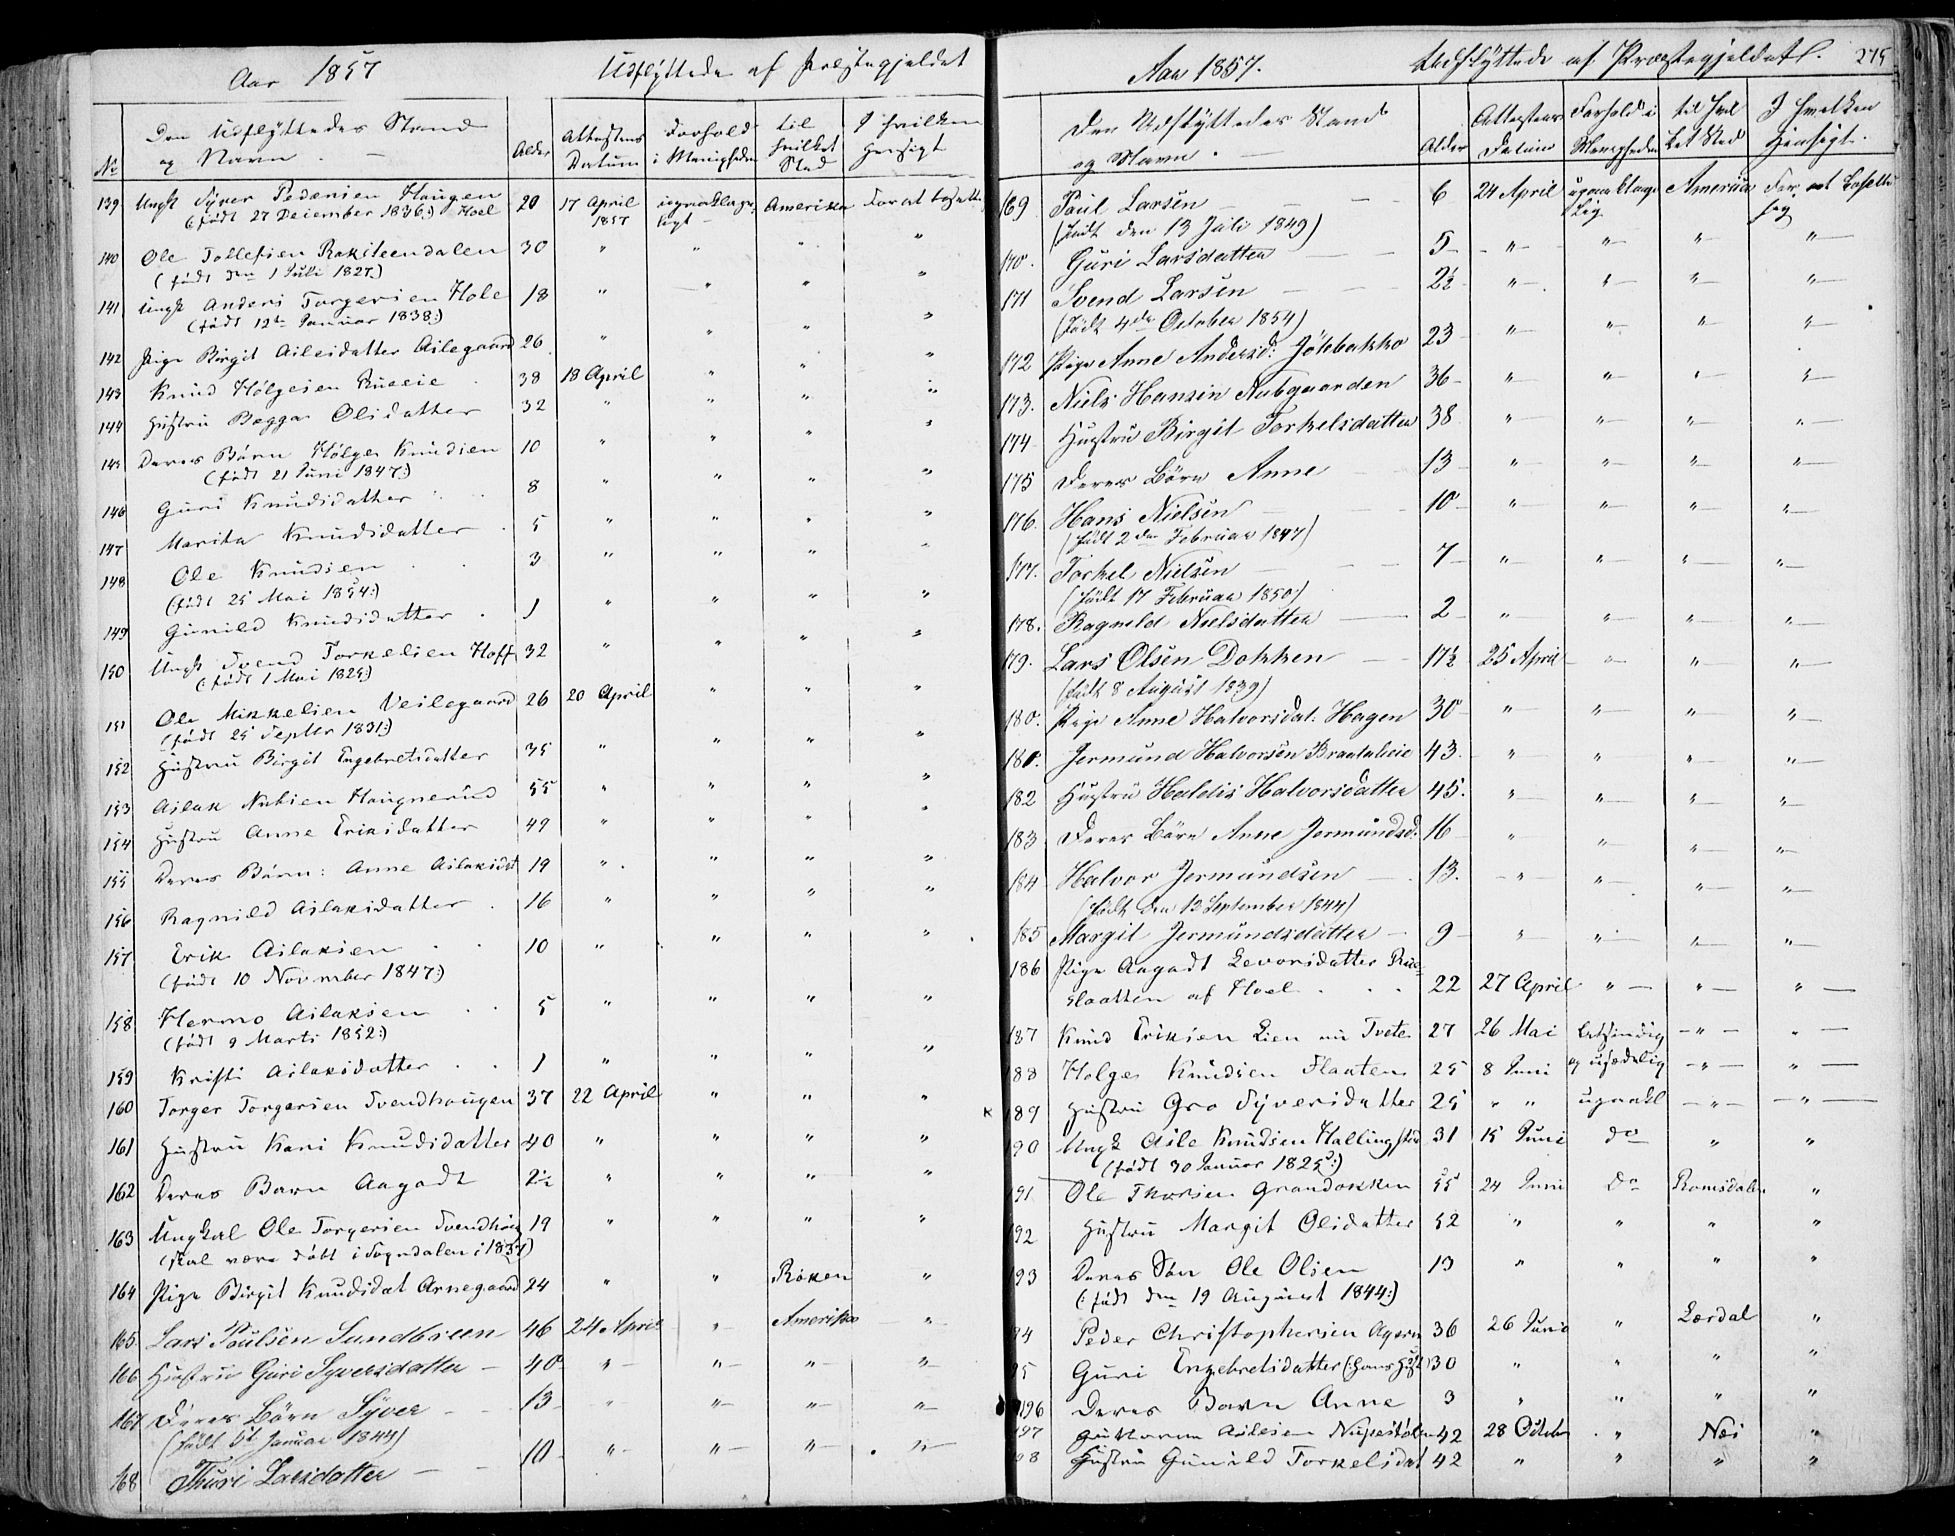 Aar 1857 Udflyttede af Præstegjeldet
No Den Udflyttedes Stand og Navn. Alder Attestens Datum Forhold i Menigheden til hvilket Sted I hvilken Hensigt
139 Ungk Syver Pedersen Haugen 20 17 April 1857 Amerika For at
(: født 27 December 1836:) Hoel
140 Ole Tollefsen Roksteendalen 30 " " " "
(født den 1 Juli 1827.)
141 Ungk Anders Torgersen Hole 18 " " " "
(født 12te Januar 1838:)
142 Pige Birgit Asles datter Aslegaard 26 " " " "
143 Knud Holgesen Rueslie 38 18 April " " "
144 Hustru Beggar Olsdatter 32 " " " "
145 Deres Børn Holge Knudsen 10 " " " "
(født 21 Juni 1847:)
146 Guri Knudsdatter 8 " " " "
147 Marita Knudsdatter 5 " " " "
148 Ole Knudsen 3 " " " "
(født 25 Mai 1854:)
149 Gunild Knudsdatter 1 " " " "
150 Ungk Svend Torkelsen Hoff 32 " " " "
(: født 1 Mai 1825:)
151 Ole Mikkelsen Veslegaard 26 20 April " " "
(født 25 Septbr 1831:)
152 Hustru Birgit Engebretsdatter 35 " " " "
153 Aslak Haugnerud 55 " " " "
154 Hustru Anne Eriksdatter 49 " " " "
155 Deres Børn: Anne Aslaksdat 19 " " " "
156 Ragnild Aslaksdatter 16 " " " "
157 Erik Aslaksen 10 " " " "
(født 10 November 1847:)
158 Hermo Aslaksen 5 " " " "
(født 9 Marts 1852:)
159 Kristi Aslaksdatter 1 " " " "
160 Torger Torgersen Svendhaugen 37 22 April " " "
161 Hustru Kari Knudsdatter 40 " " " "
162 Deres Barn Aagodt 2½ " " " "
163 Ungkal Ole Torgersen 19 " " " "
(skal være født i Sogndalen i 1837)
164 Pige Birgit Knudsdat Arnegaard 24 " " Røken "
165. Lars Poulsen Sundbreen 46 24 April " Amerika "
166 Hustru Guri Syversdatter 40 " " " "
167 Deres Børn Syver 13 " " " "
(født 5t Januar 1844)
168 Thuri Larsdatter 10 " " " "
Aar 1857. Udflyttede af Præstegjeldet. 275
Den Udflyttedes Stand og Navn. Alder Attestens Datum Forhold i Menigheden til hvilket Sted I hvilken Hensigt.
169 Paul Larsen 6 24 April upaaklagelig Amerika For at bosætte sig
(født den 13 Juli 1849)
170. Guri Larsdatter 5 " " " "
171 Svend Larsen 2½ " " " "
(født 4de October 1854)
172 Pige Anne Andersd: 23 " " " "
173. Niels Hansen Nubgaarden 36 " " " "
174 Hustru Birgit Torkelsdatter 38 " " " "
175 Deres Børn Anne 13 " " " "
176. Hans Nielsen 10 " " " "
(født 2den Februar 1847)
177. Torkel Nielsen 7 " " " "
(født 17 Februar 1850)
178. Ragnild Nielsdatter 2 " " " "
179. Lars Olsen Dokken 17½ 25 April " " "
(født 8 August 1839)
180. Pige Anne Halvorsdat: Hagen 30 " " " "
181. Jermund Halvorsen Braatalie 43. " " " "
182 Hustru Haldis Halvorsdatter 45. " " " "
183 Deres Børn Anne Jermundsd: 16 " " " "
184 Halvor Jermundsen 13. " " " "
(født den 12 September 1844)
185 Margit Jermundsdatter 9 " " " "
186 Pige Aagodt Levorsdatter
slaatten af Hoel 22 27 April " " "
187 Knud Eriksen Lien nu Tvete 27 26 Mai letsindig " "
188 Holge Knudsen Flaaten 25 8 Juni og usædelig " "
189 Hustru Gro Syversdatter 25 " " upaakl " "
190 Ungk Asle Knudsen Hallingstad 31 15 Juni do " "
(født 30 Januar 1825:)
191 Ole Thorsen Grandokken 55 24 Juni Do Romsdalen "
192 Hustru Margit Olsdatter 52 " " " "
193 Deres Søn Ole Olsen 13 " " " "
(: født den 19 August 1844:)
94 Peder Christophersen 36 26 Juni " Lærdal "
95 Guri Engebretsdatter (: hans Hust:) 30 " " " "
196 Deres Barn Anne 3 " " " "
197 Aslesen 42 28 Octob " Næs "
98 Hustru Gunild Torkelsdat 42 " " " "